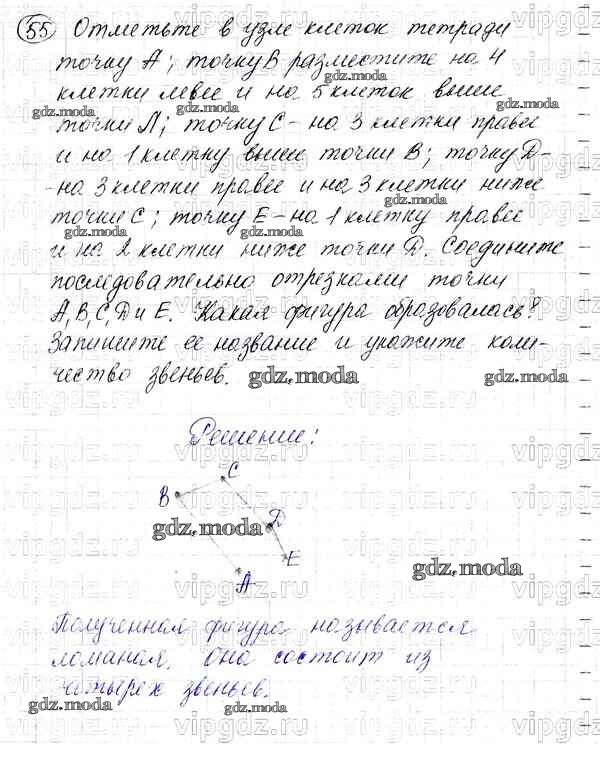 55 Отметьте в узле клеток тетради
точку А; точку В разместите на 4
клетки левее и на 5 клеток выше
точки А; точку С - на 3 клетки правее
и на 1 клетку выше точки В; точку D -
на 3 клетки правее и на 3 клетки ниже
точки С; точку Е - на 1 клетку правее
и на 2 клетки ниже точки D. Соедините
последовательно отрезками точки
А, В, С, D и Е. Какая фигура образовалась?
Запишите ее название и укажите коли-
чество звеньев.
Решение:
С
В
D
Е
А
Полученная фигура называется
ломаная. Она состоит из
четырех звеньев.
gdz.moda
vipgdz.ru